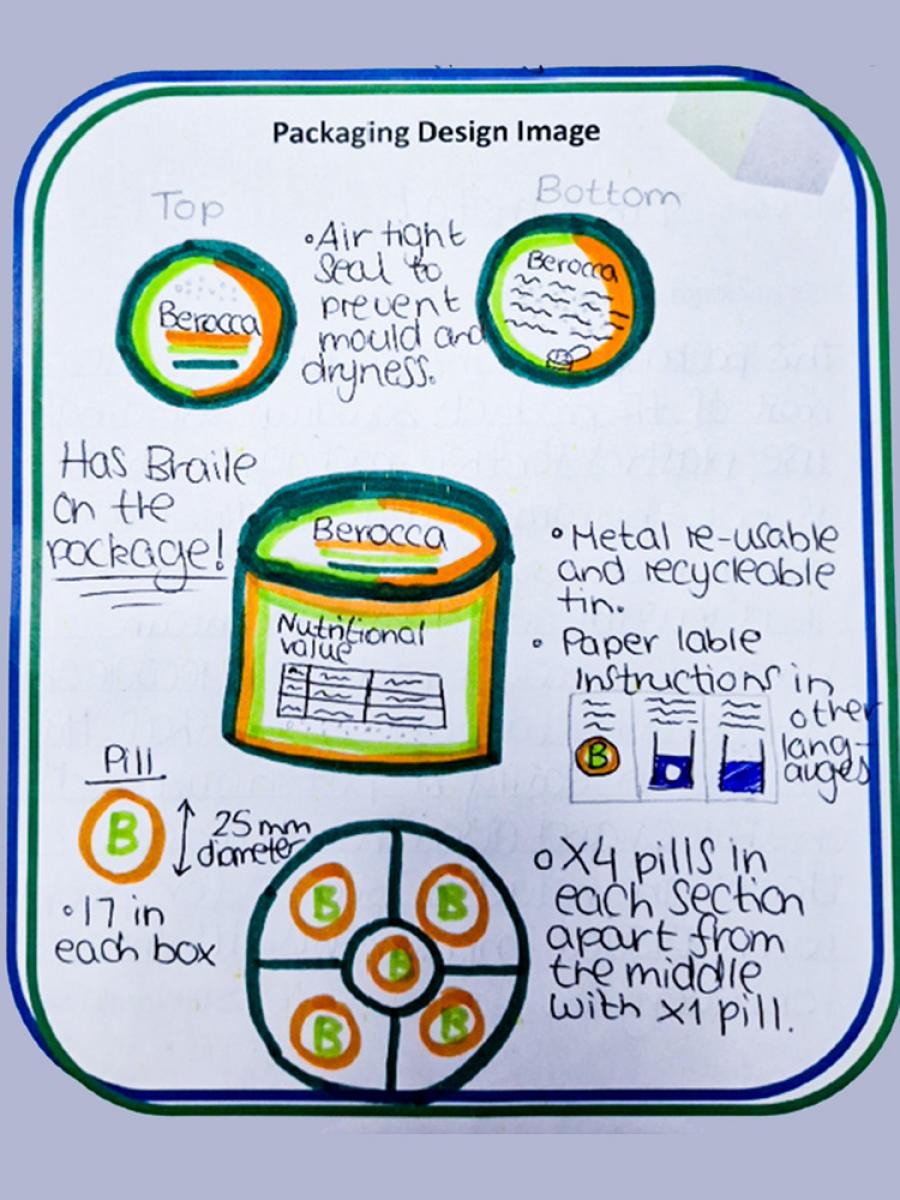 Packaging Design Image
Top
Bottom
Berocca
◦Air tight
seal to
prevent
mould and
dryness.
Berocca
Has Braile
on the
package!
Berocca
Nutritional
value
◦Metal re-usable
and recycleable
tin.
◦ Paper lable
Instructions in
other
lang-
auges
B
Pill
B
25 mm
diameter
◦17 in
each box
B
B
B
B
B
◦X4 pills in
each section
apart from
the middle
with x1 pill.